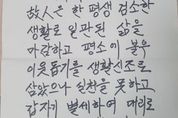 故人은 한 평생 검소한
생활로 일관된 삶을
마감하고 평소에 불우
이웃돕기를 생활신조로
삼았으나 실천을 못하고
갑자기 별세하여 대리로